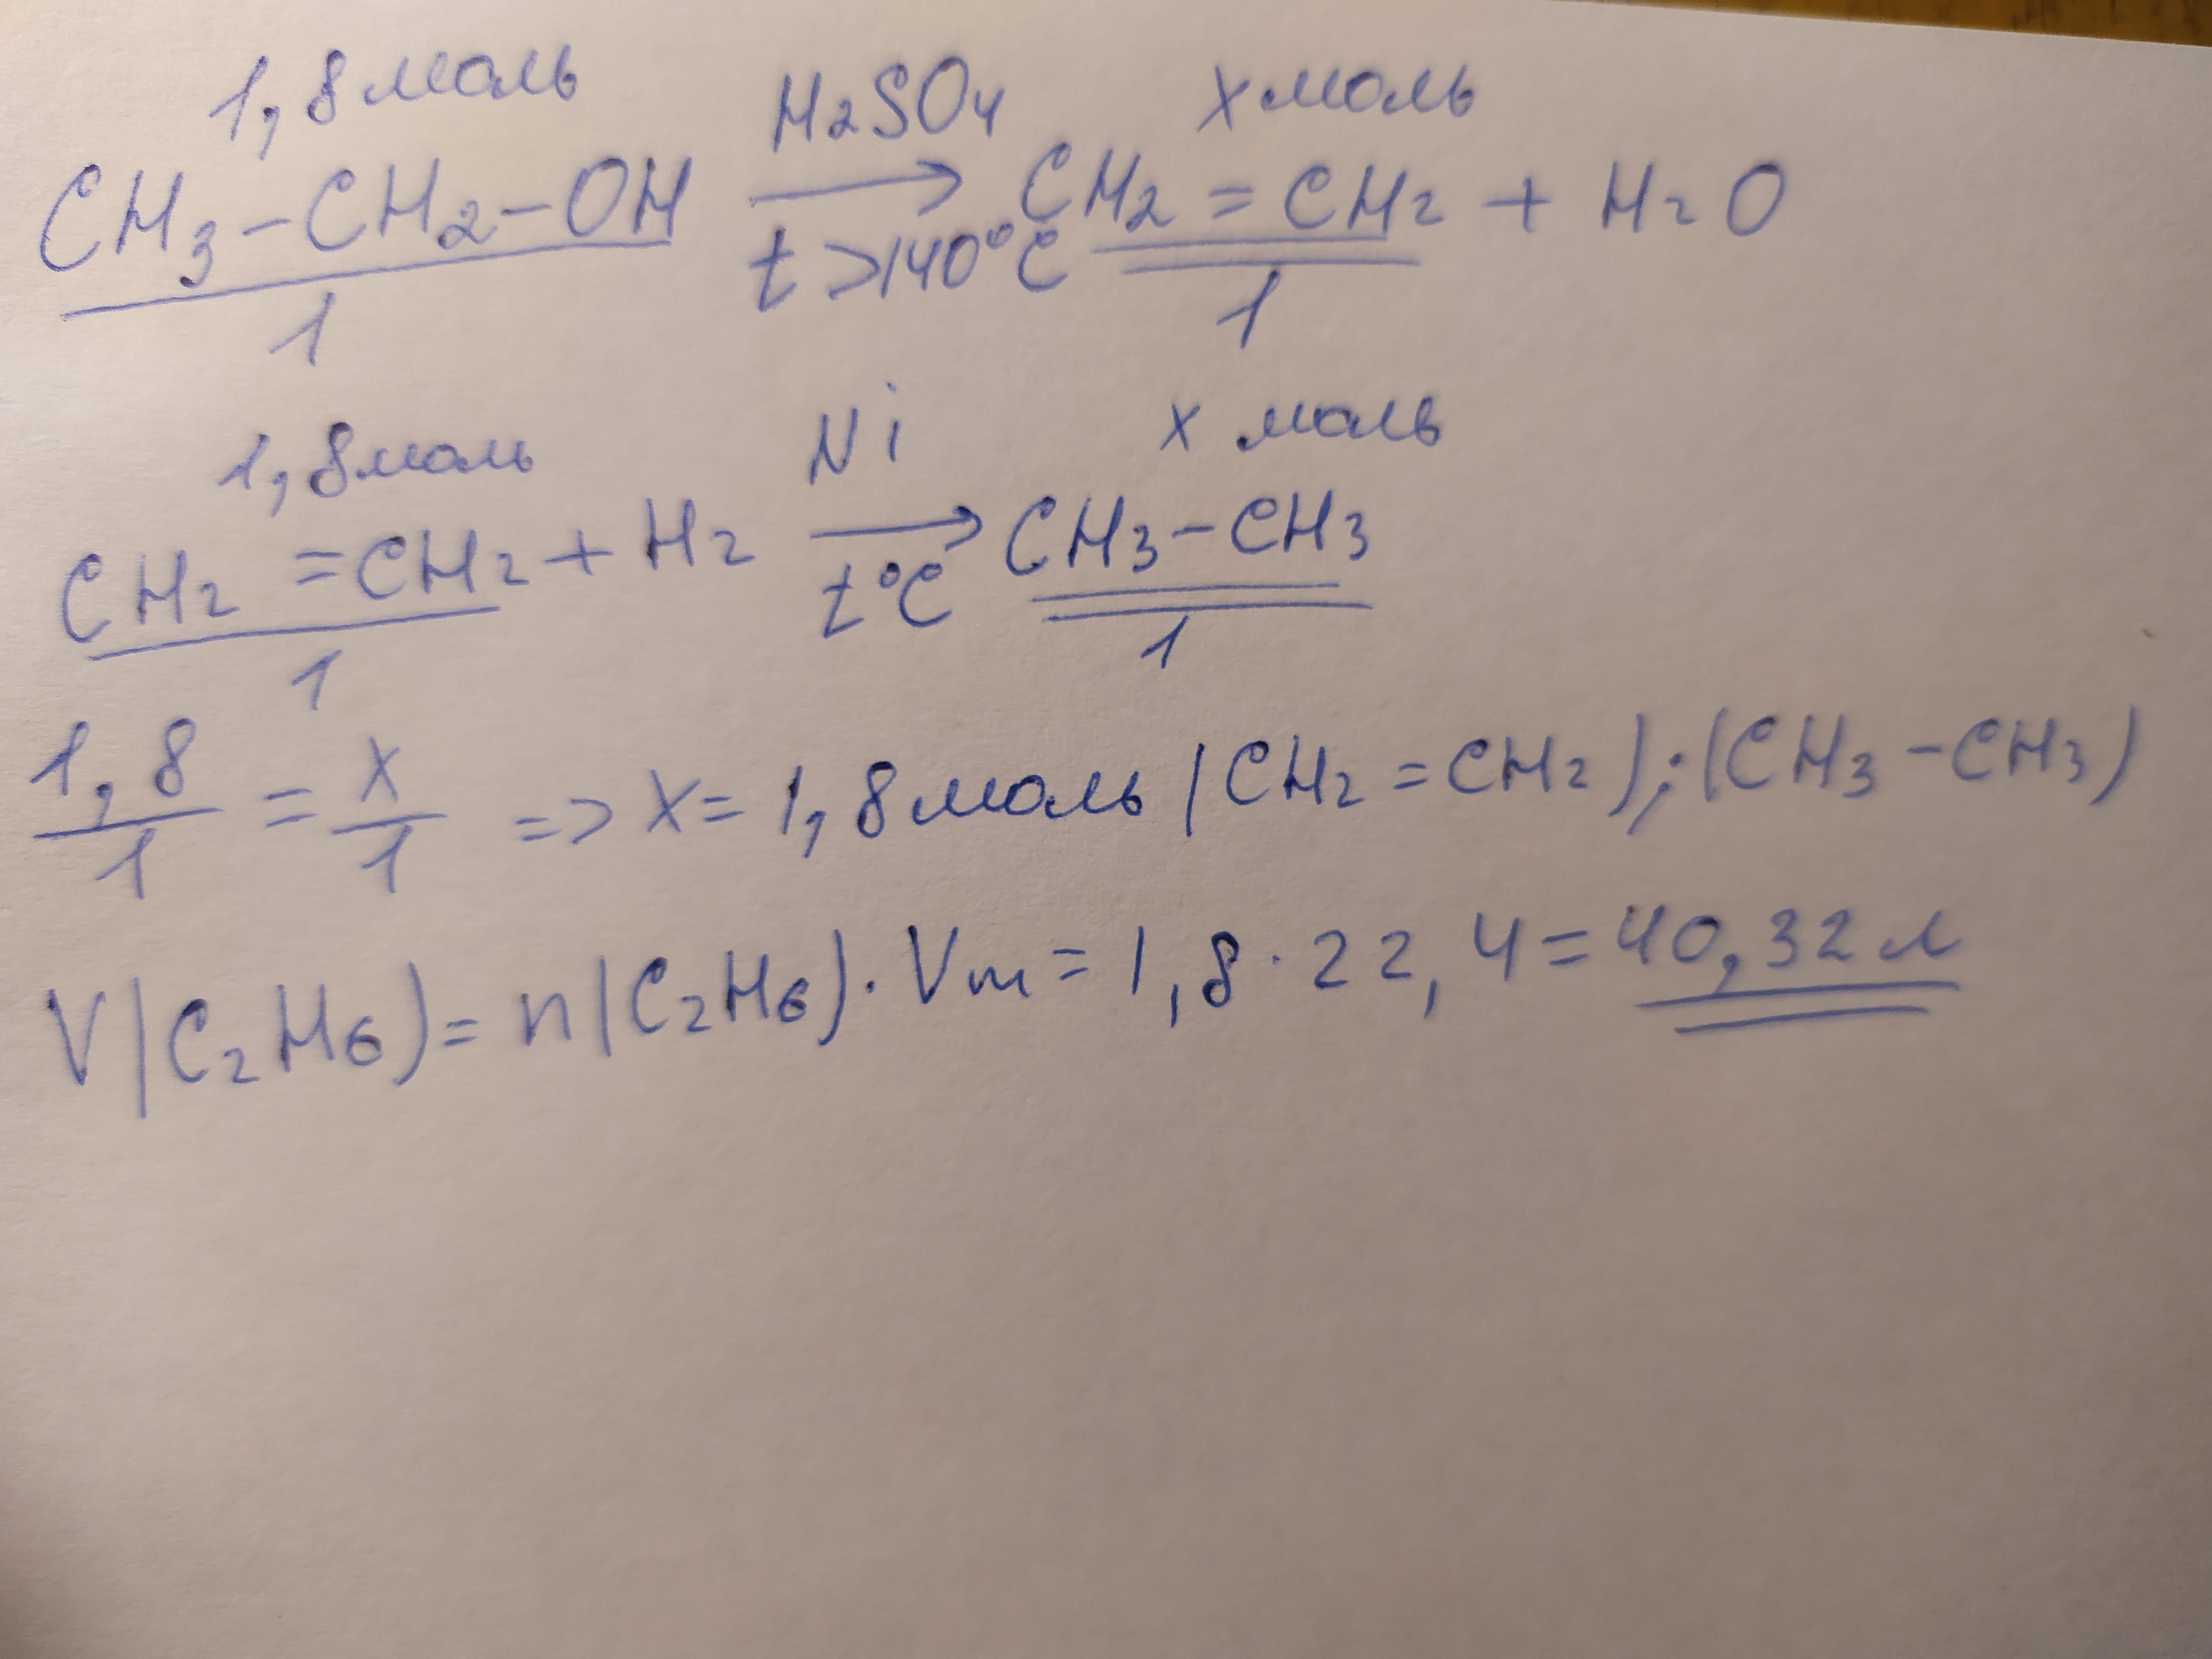 1,8 моль H2SO4 x моль
CH3-CH2-OH → CH2=CH2 + H2O
1 t>140°C 1
1,8 моль Ni x моль
CH2=CH2 + H2 → CH3-CH3
1 t°C 1
1,8/1 = x/1 => x = 1,8 моль (CH2=CH2); (CH3-CH3)
V(C2H6) = n(C2H6)·Vm = 1,8·22,4 = 40,32 л